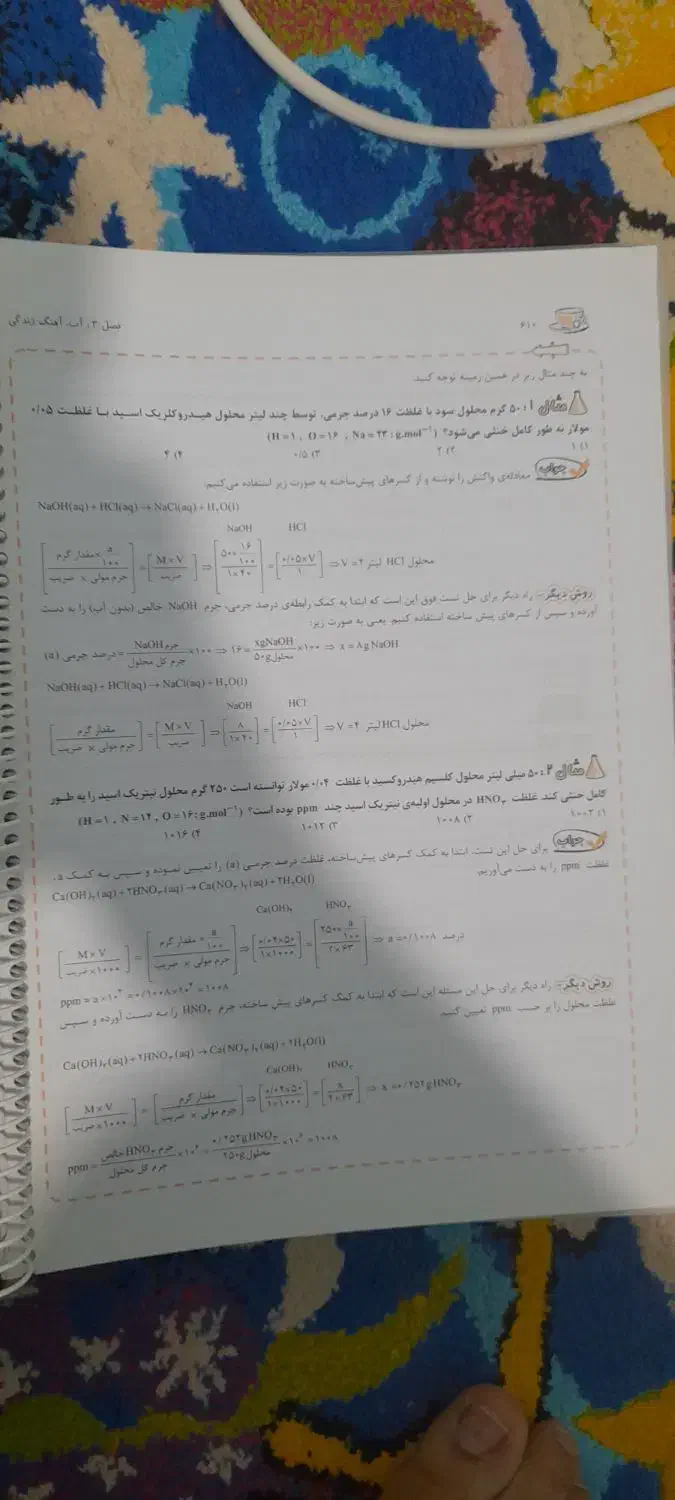 ۶۱۰
فصل ۳: آب، آهنگ زندگی
به چند مثال زیر در همین زمینه توجه کنید.
مثال ۱: ۵۰ گرم محلول سود با غلظت ۱۶ درصد جرمی، توسط چند لیتر محلول هیدروکلریک اسید با غلظت ۰/۰۵
مولار به طور کامل خنثی می‌شود؟ (H = ۱ , O = ۱۶ , Na = ۲۳ : g.mol⁻¹)
۱) ۱ ۲) ۲ ۳) ۰/۵ ۴) ۴
جواب معادله‌ی واکنش را نوشته و از کسرهای پیش‌ساخته به صورت زیر استفاده می‌کنیم:
NaOH(aq) + HCl(aq) → NaCl(aq) + H₂O(l)
NaOH HCl
[مقدار گرم × a/۱۰۰ / جرم مولی × ضریب] = [M × V / ضریب] ⇒ [۵۰ × ۱۶/۱۰۰ / ۱ × ۴۰] = [۰/۰۵ × V / ۱] ⇒ V = ۴ لیتر HCl محلول
روش دیگر- راه دیگر برای حل تست فوق این است که ابتدا به کمک رابطه‌ی درصد جرمی، جرم NaOH خالص (بدون آب) را به دست
آورده و سپس از کسرهای پیش ساخته استفاده کنیم. یعنی به صورت زیر:
درصد جرمی (a) = جرم NaOH / جرم کل محلول × ۱۰۰ ⇒ ۱۶ = xgNaOH / ۵۰g محلول × ۱۰۰ ⇒ x = ۸g NaOH
NaOH(aq) + HCl(aq) → NaCl(aq) + H₂O(l)
NaOH HCl
[مقدار گرم / جرم مولی × ضریب] = [M × V / ضریب] ⇒ [۸ / ۱×۴۰] = [۰/۰۵ × V / ۱] ⇒ V = ۴ لیتر HCl محلول
مثال ۲: ۵۰ میلی لیتر محلول کلسیم هیدروکسید با غلظت ۰/۰۴ مولار توانسته است ۲۵۰ گرم محلول نیتریک اسید را به طور
کامل خنثی کند. غلظت HNO₃ در محلول اولیه‌ی نیتریک اسید چند ppm بوده است؟ (H = ۱ , N = ۱۴ , O = ۱۶ : g.mol⁻¹)
۱) ۱۰۰۲ ۲) ۱۰۰۸ ۳) ۱۰۱۲ ۴) ۱۰۱۶
جواب برای حل این تست، ابتدا به کمک کسرهای پیش‌ساخته، غلظت درصد جرمی (a) را تعیین نموده و سپس به کمک a،
غلظت ppm را به دست می‌آوریم.
Ca(OH)₂(aq) + ۲HNO₃(aq) → Ca(NO₃)₂(aq) + ۲H₂O(l)
Ca(OH)₂ HNO₃
[M × V / ضریب × ۱۰۰۰] = [مقدار گرم × a/۱۰۰ / جرم مولی × ضریب] ⇒ [۰/۰۴ × ۵۰ / ۱ × ۱۰۰۰] = [۲۵۰ × a/۱۰۰ / ۲ × ۶۳] ⇒ a = ۰/۱۰۰۸ درصد
ppm = a × ۱۰⁴ = ۰/۱۰۰۸ × ۱۰⁴ = ۱۰۰۸
روش دیگر- راه دیگر برای حل این مسئله این است که ابتدا به کمک کسرهای پیش ساخته، جرم HNO₃ را به دست آورده و سپس
غلظت محلول را بر حسب ppm تعیین کنیم.
Ca(OH)₂(aq) + ۲HNO₃(aq) → Ca(NO₃)₂(aq) + ۲H₂O(l)
Ca(OH)₂ HNO₃
[M × V / ضریب × ۱۰۰۰] = [مقدار گرم / جرم مولی × ضریب] ⇒ [۰/۰۴ × ۵۰ / ۱ × ۱۰۰۰] = [x / ۲ × ۶۳] ⇒ x = ۰/۲۵۲g HNO₃
ppm = جرم HNO₃ خالص / جرم کل محلول × ۱۰⁶ = ۰/۲۵۲g HNO₃ / ۲۵۰g محلول × ۱۰⁶ = ۱۰۰۸